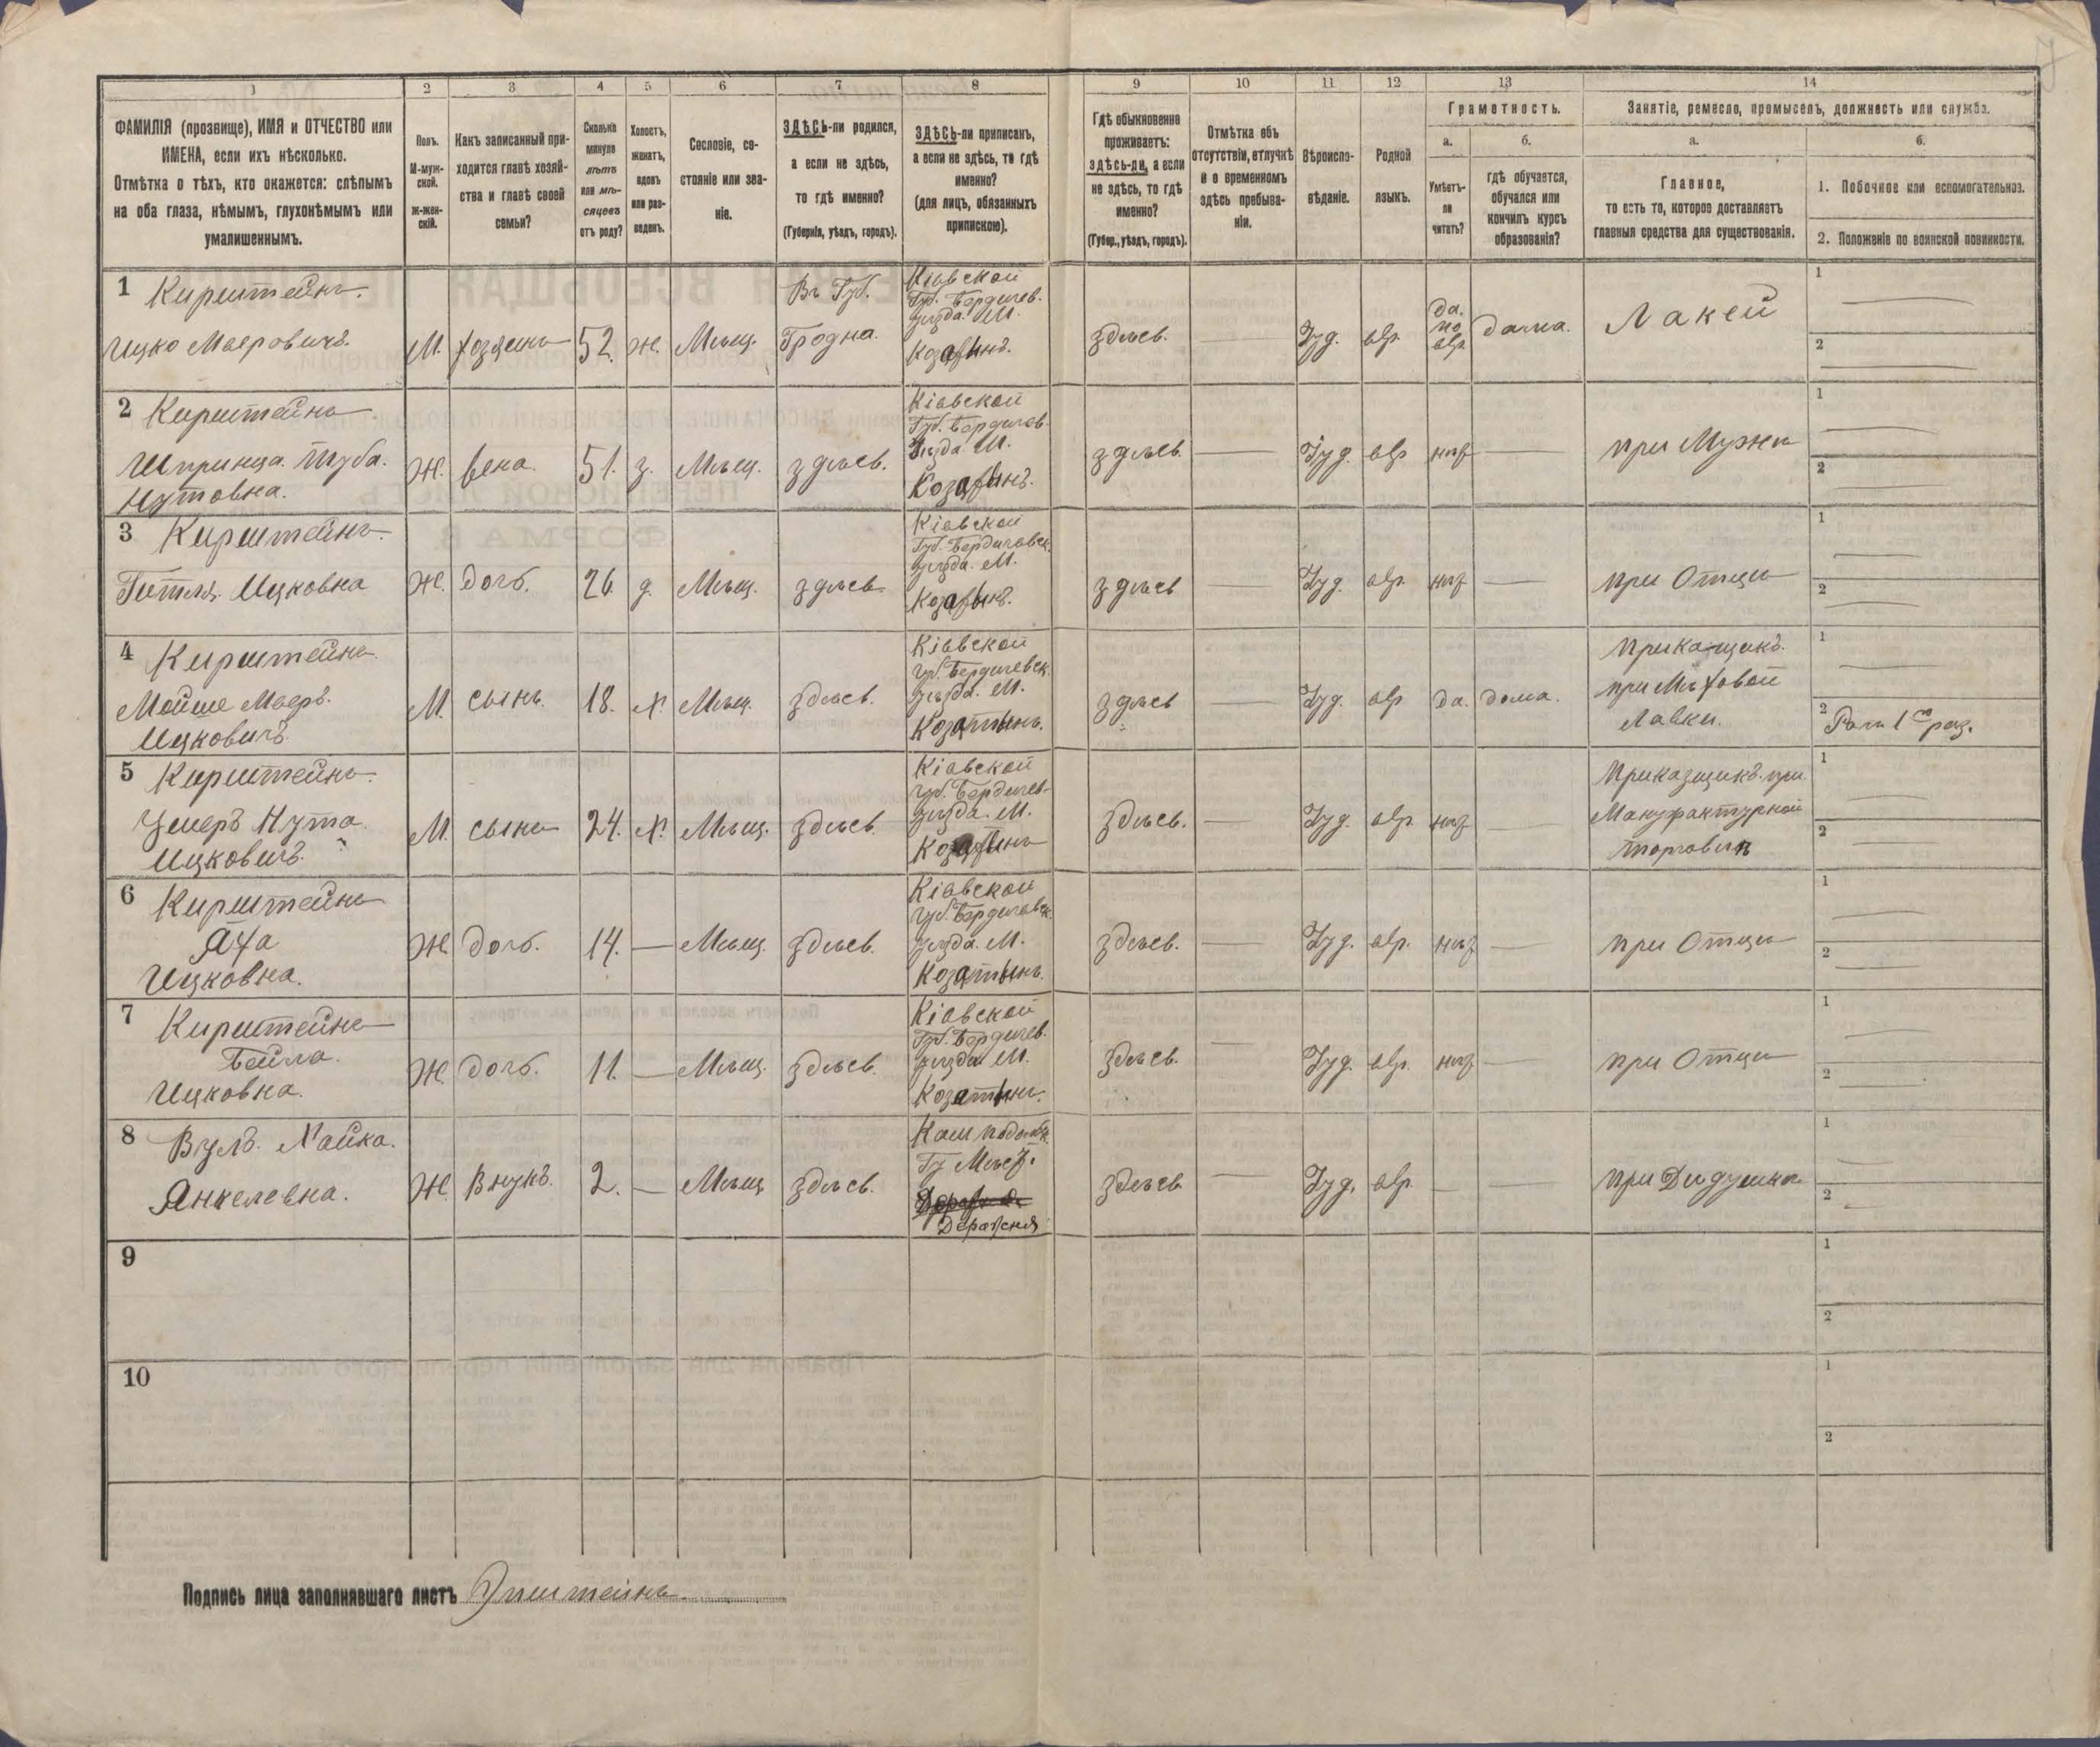 1 2 3 4 5 6 7 8 9 10 11 12 13 14
ФАМИЛІЯ (прозвище), ИМЯ и ОТЧЕСТВО или
ИМЕНА, если ихъ нѣсколько.
Отмѣтка о тѣхъ, кто окажется: слѣпымъ
на оба глаза, нѣмымъ, глухонѣмымъ или
умалишеннымъ.
Полъ.
М-муж-
ской.
ж-жен-
скій.
Какъ записанный при-
ходится главѣ хозяй-
ства и главѣ своей
семьи?
Сколько
минуло
лѣтъ
или мѣ-
сяцевъ
отъ роду?
Холостъ,
женатъ,
вдовъ
или раз-
веденъ.
Сословіе, со-
стояніе или зва-
ніе.
ЗДѢСЬ-ли родился,
а если не здѣсь,
то гдѣ именно?
(Губернія, уѣздъ, городъ).
ЗДѢСЬ-ли приписанъ,
а если не здѣсь, то гдѣ
именно?
(для лицъ, обязанныхъ
припискою).
Гдѣ обыкновенно
проживаетъ:
здѣсь-ли, а если
не здѣсь, то гдѣ
именно?
(Губер., уѣздъ, городъ).
Отмѣтка объ
отсутствіи, отлучкѣ
и о временномъ
здѣсь пребыва-
ніи.
Вѣроиспо-
вѣданіе.
Родной
языкъ.
Грамотность.
а.
Умѣетъ-
ли
читать?
б.
гдѣ обучается,
обучался или
кончилъ курсъ
образованія?
Занятіе, ремесло, промыселъ, должность или служба.
а.
Главное,
то есть то, которое доставляетъ
главныя средства для существованія.
б.
1. Побочное или вспомогательное.
2. Положеніе по воинской повинности.
1 Кирштейнъ.
Ицко Маеровичъ.
М. хозяинъ 52. ж. Мѣщ.
Въ Губ.
Гродна.
Кіевской
Губ. Бердичев.
уѣзда. М.
Козатинъ.
здѣсь. Іуд. евр.
да.
по
евр
дома. Лакей
1
2
2 Кирштейнъ
Шпринца. Туба.
Нутовна.
Ж. жена. 51. з. Мѣщ. здѣсь.
Кіевской
Губ. Бердичев.
уѣзда М.
Козатинъ.
здѣсь. Іуд. евр нѣт при Мужи
1
2
3 Кирштейнъ
Гитля. Ицковна
Ж. дочь. 26. д. Мѣщ. здѣсь
Кіевской
Губ. Бердичевск.
уѣзда. М.
Козатинъ.
здѣсь Іуд. евр. нѣт при Отцы
1
2
4 Кирштейнъ.
Мойше Маеръ.
Ицковичъ
М. сынъ. 18. х. Мѣщ. здѣсь.
Кіевской
губ. Бердичевск.
уѣзда. М.
Козатынъ.
здѣсь Іуд. евр да. дома.
Прика-щикъ.
при Мѣховой
Лавки.
1
2 Ратн 1го раз.
5 Кирштейнъ.
Нута
Ицковичъ.
М. сынъ 24. х. Мѣщ. здѣсь.
Кіевской
губ. Бердичев-
уѣзда. М.
Козатинъ
здѣсь. Іуд. евр. нѣт
Приказщикъ. при.
Мануфактурной
торговли
1
2
6 Кирштейнъ
Ицковна.
Ж. дочь. 14. Мѣщ. здѣсь.
Кіевской
губ. Бердичевск.
уѣзда. М.
Козатынъ.
здѣсь. Іуд. евр. нѣт при Отцы
1
2
7 Кирштейнъ
Бейла.
Ицковна.
Ж. дочь. 11. Мѣщ. здѣсь.
Кіевской
Губ. Бердичев.
уѣзда М.
Козатынъ.
здѣсь. Іуд. евр. нѣт при Отцы
1
2
8 Вулъ. Хайка.
Янкелевна.
Ж. Внукъ. 2. Мѣщ здѣсь.
Кам подольск.
Гу Мѣст.
Деражня
здѣсь Іуд. евр. при Дидушки
1
2
9
1
2
10
1
2
Подпись лица заполнявшаго листъ Эпштейнъ